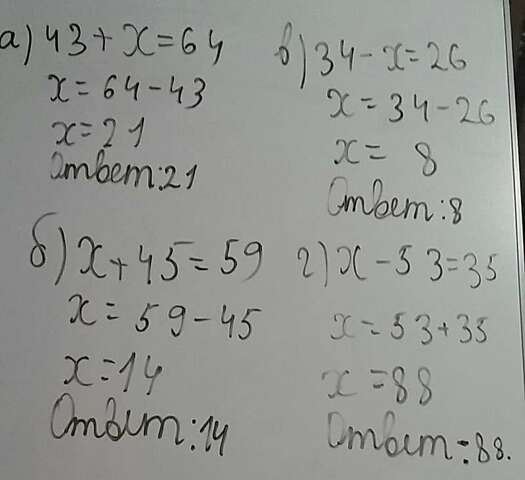 а) 43 + x = 64
x = 64 - 43
x = 21
Ответ: 21
в) 34 - x = 26
x = 34 - 26
x = 8
Ответ: 8
б) x + 45 = 59
x = 59 - 45
x = 14
Ответ: 14
г) x - 53 = 35
x = 53 + 35
x = 88
Ответ: 88.